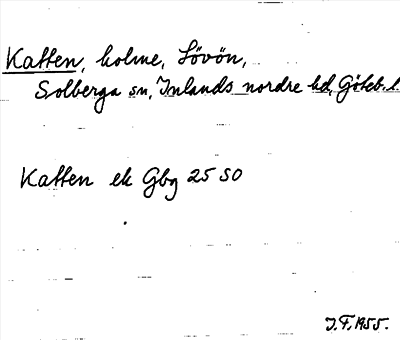 Katten, holme, Lövön,
Solberga sn, Inlands nordre hd, Göteb. l.
Katten ek Gbg 25 SO
I. F. 1955.